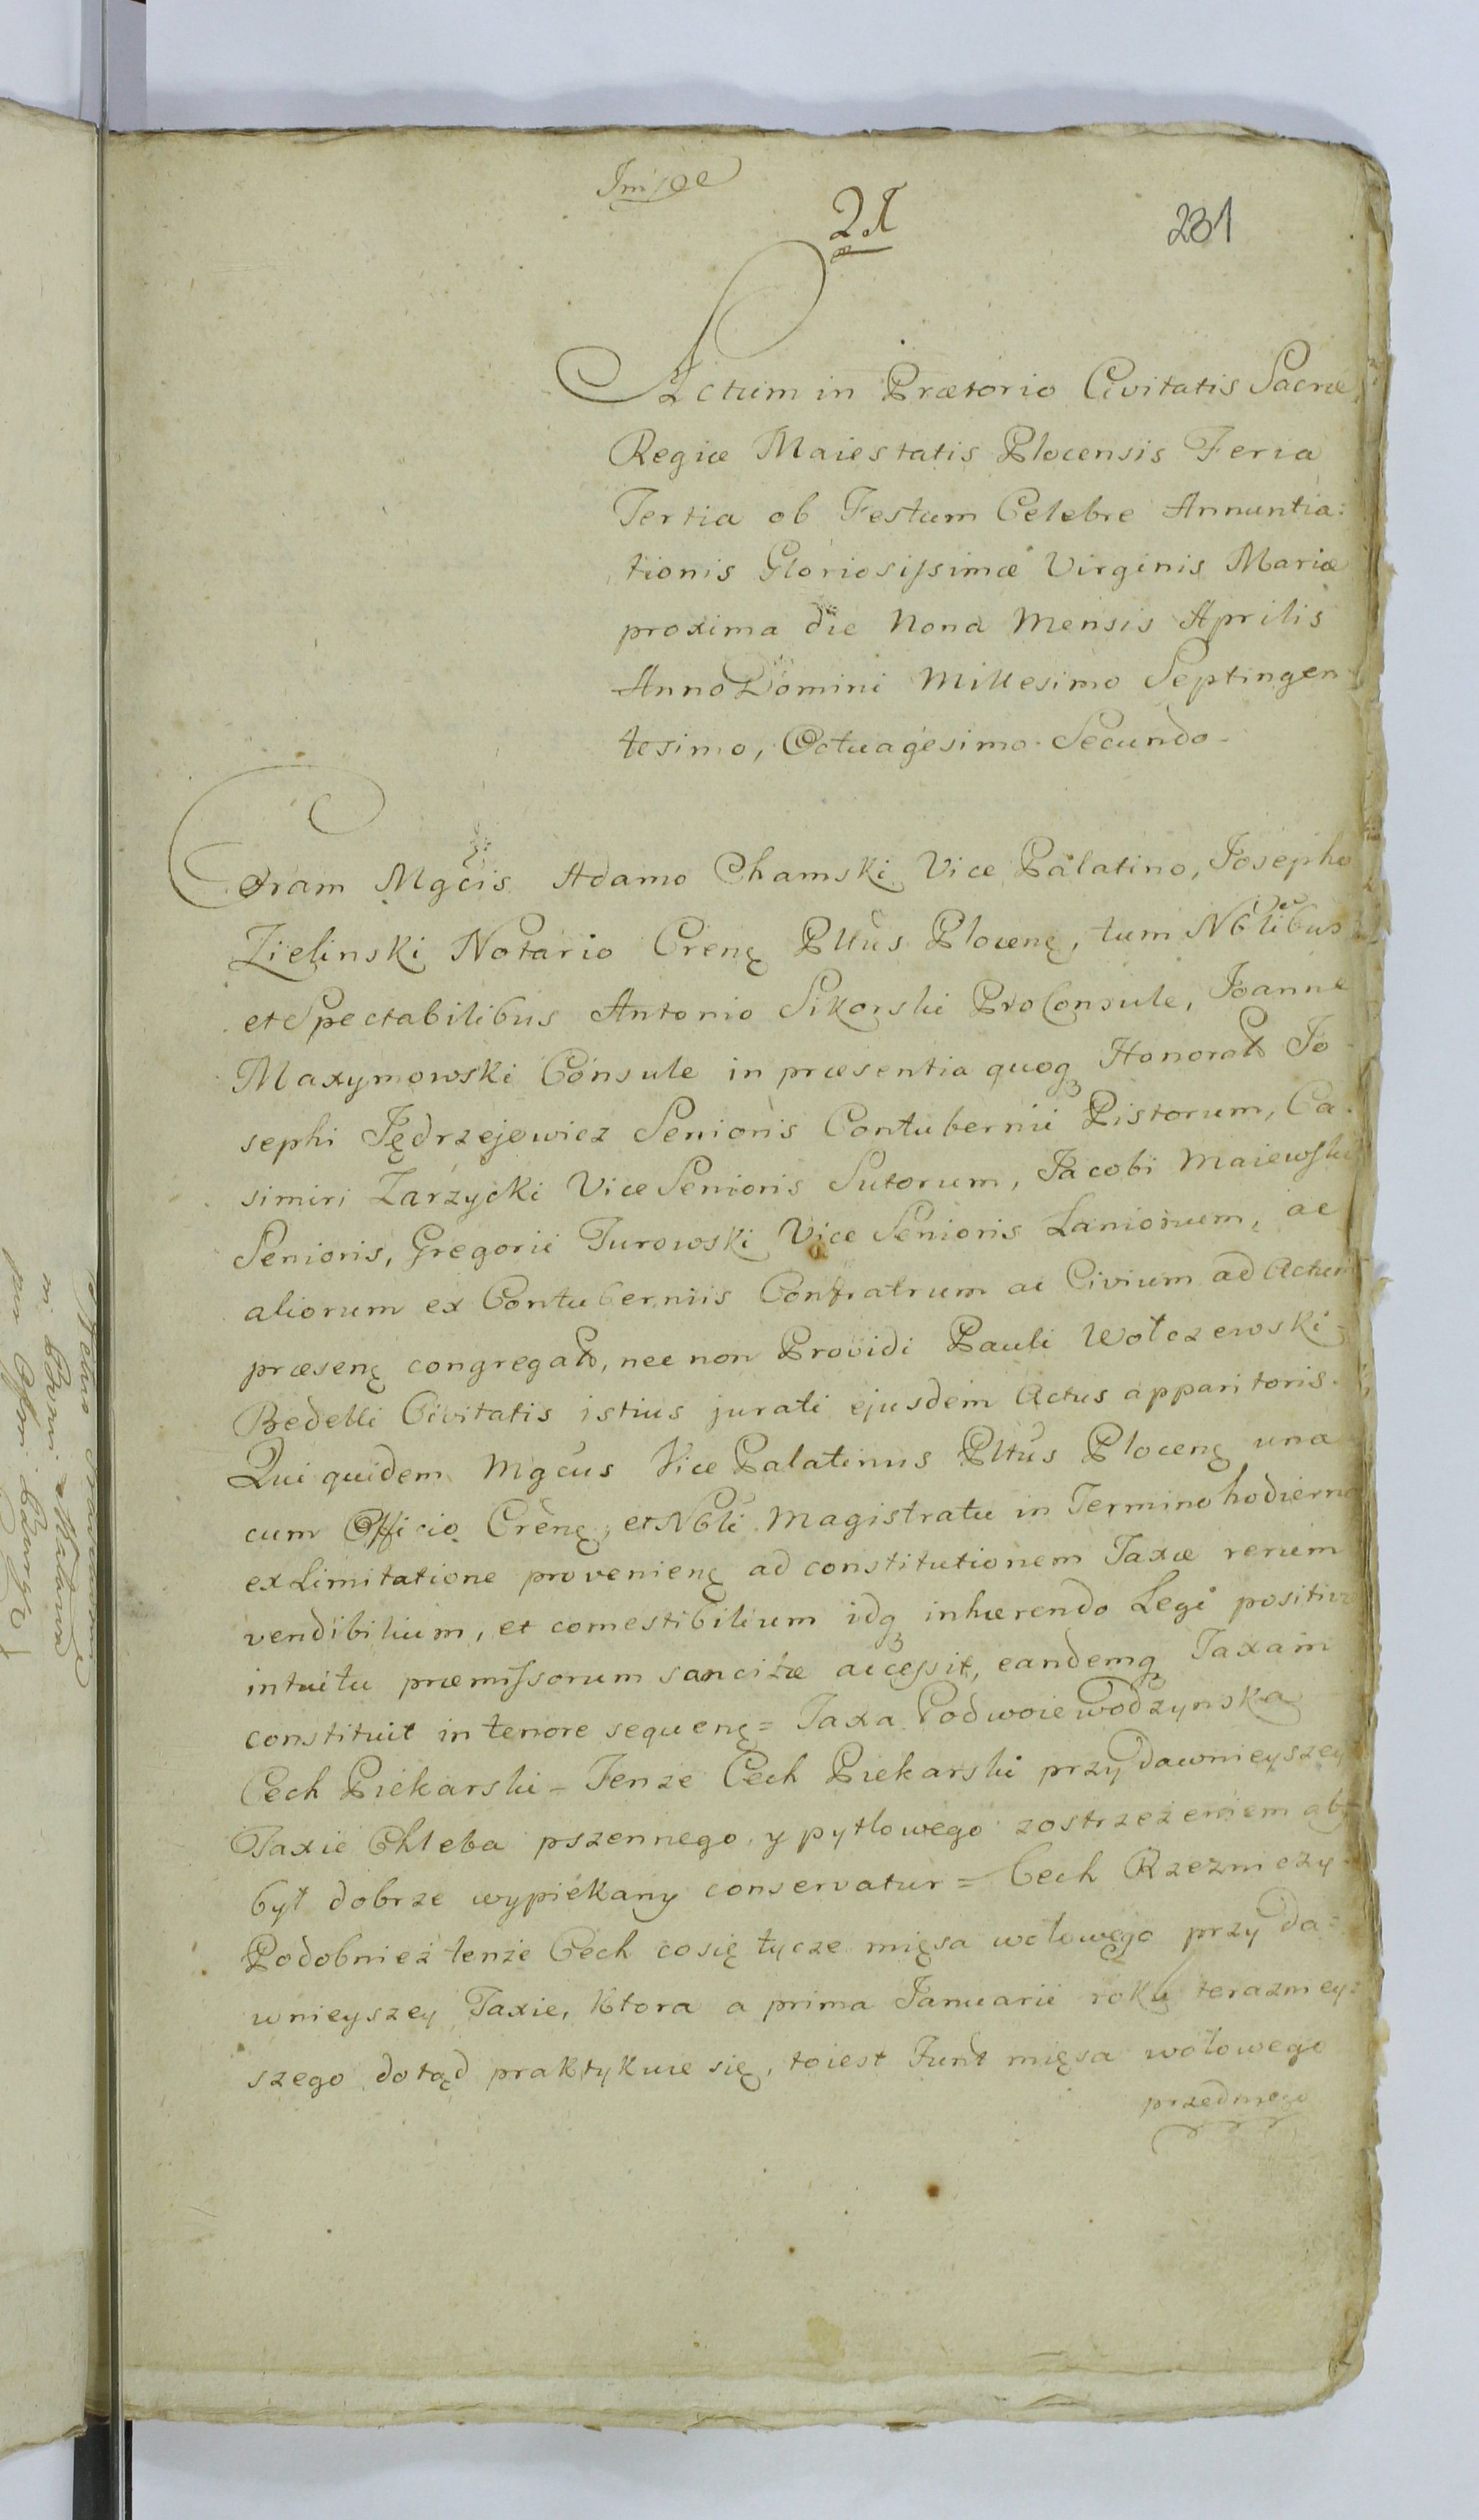 231
Actum in Prætorio Civitatis Sacræ
Regiæ Maiestatis Plocensis Feria
Tertia ob Festum Celebre Annuntia:
tionis Gloriosissimæ Virginis Mariæ
proxima die Nona Mensis Aprilis
Anno Domini Millesimo Septingen
tesimo, Octuagesimo Secundo.
Coram Mgcis Adamo Chamski Vice Palatino, Josepho
Zielinski Notario Crenę Pltus Plocenę, tum Nblibus
et Spectabilibus Antonio Sikorski ProConsule, Joanne
Maxymowski Consule in præsentia quoqꝫ Honorat Jo
sephi Jędrzejewicz Senioris Contubernii Pistorum, Ca
simiri Zarzycki Vice Senioris Sutorum, Jacobi Maiewski
Senioris, Gregorii Turowski Vice Senioris Lanionum, ac
aliorum ex Contuberniis Confratrum ac Civium ad Actum
præsenę congregat, nec non Providi Pauli Wołczewski
Bedelli Civitatis istius jurati ejusdem Actus apparitoris.
Qui quidem Mgcus Vice Palatinus Pltus Plocenę una
cum Officio Crenę, et Nbli Magistratu in Termino hodierno
ex Limitatione provenienę ad constitutionem Taxæ rerum
vendibilium, et comestibilium idqꝫ inhærendo Legi positivæ
intuitu præmissorum sancitæ accessit, eandemqꝫ Taxam
constituit in tenore sequenę = Taxa Podwoiewodzynska
Cech Piekarski = Tenze Cech Piekarski przy dawnieyszey
Taxie Chleba pszennego, y pytlowego zostrzeżeniem aby
był dobrze wypiekany conservatur = Cech Rzezniczy
Podobnież tenże Cech cosię tycze mięsa wołowego przy da=
wnieyszey Taxie, ktora a prima Januarii roku terazniey:
szego dotąd praktykuie się, toiest Funt mięsa wołowego
przedniego